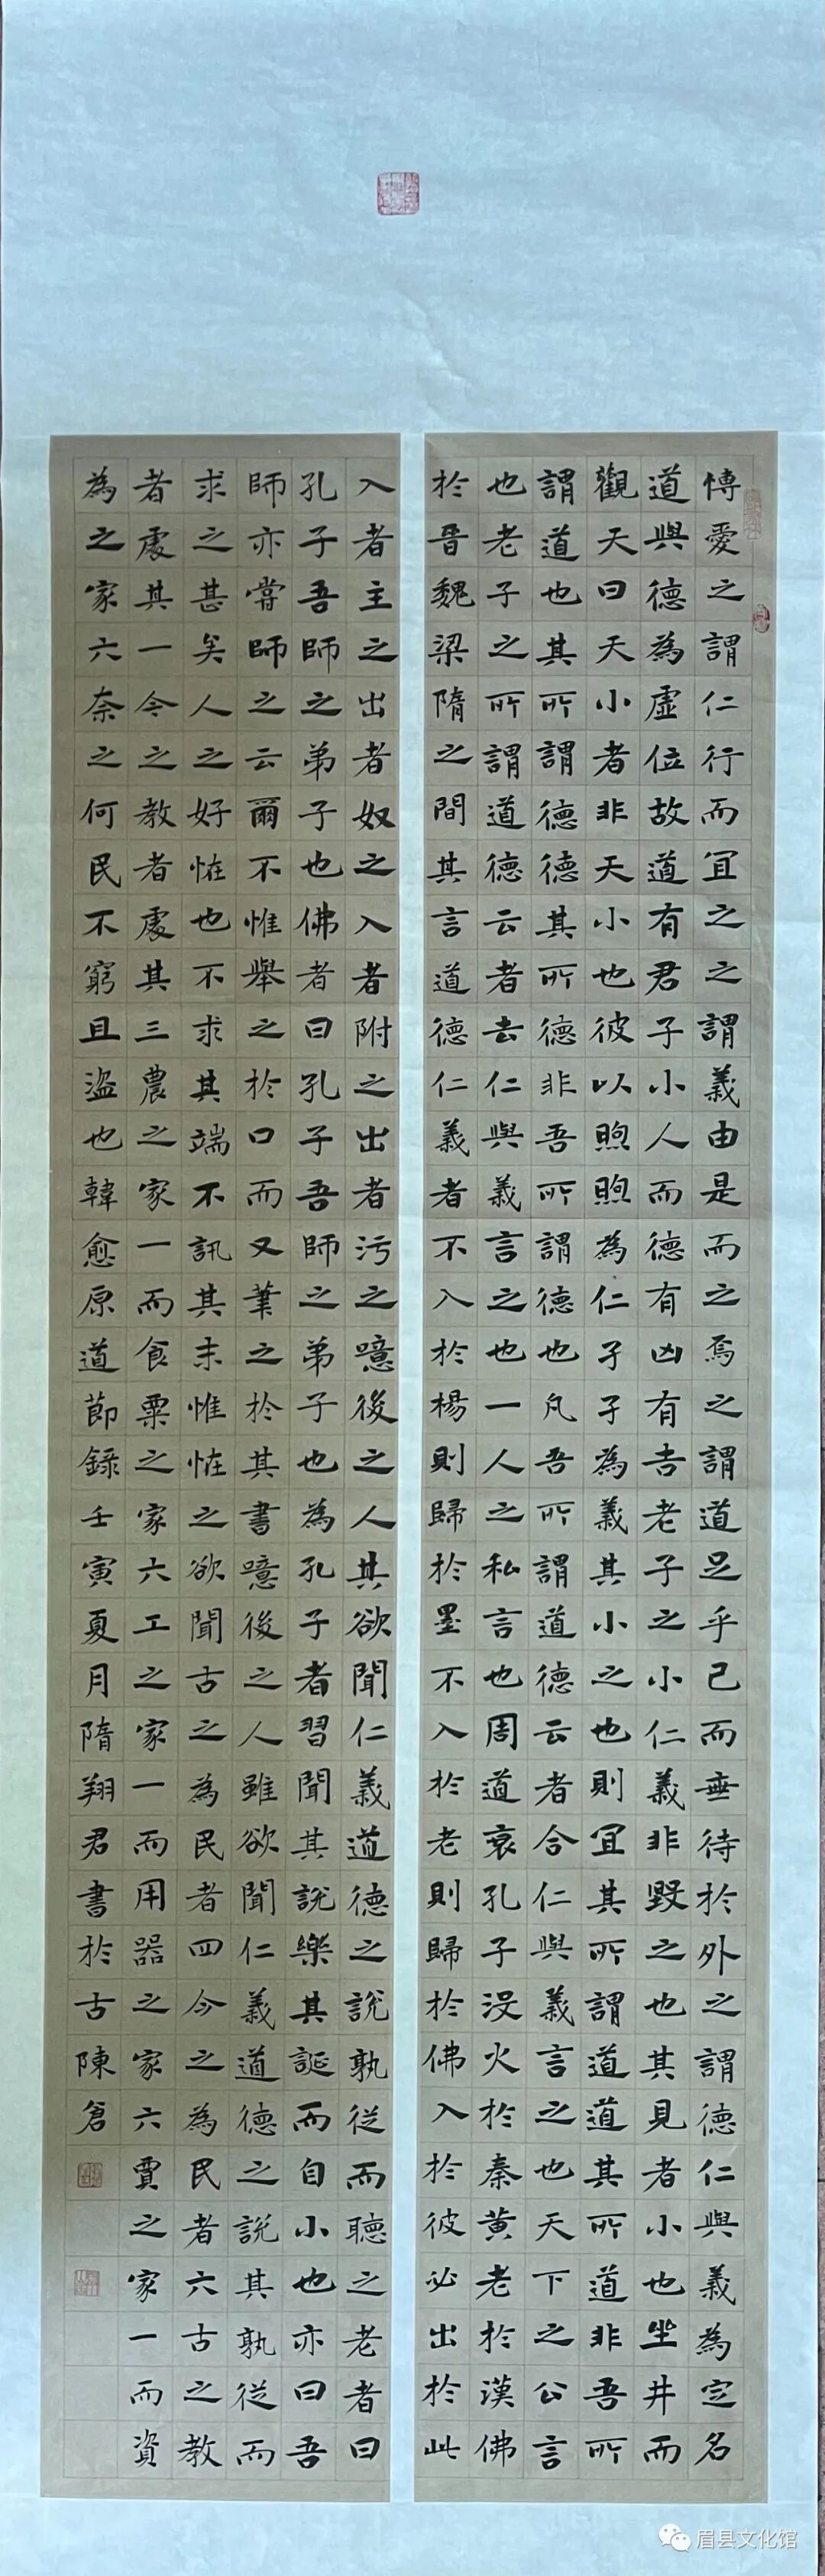 愽愛之謂仁行而冝之之謂義由是而之焉之謂道足乎己而無待於外之謂德仁與義為定名
道與德為虛位故道有君子小人而德有凶有吉老子之小仁義非毀之也其見者小也坐井而
觀天曰天小者非天小也彼以煦煦為仁孑孑為義其小之也則冝其所謂道道其所道非吾所
謂道也其所謂德德其所德非吾所謂德也凡吾所謂道德云者合仁與義言之也天下之公言
也老子之所謂道德云者去仁與義言之也一人之私言也周道衰孔子沒火於秦黃老於漢佛
於晉魏梁隋之間其言道德仁義者不入於楊則歸於墨不入於老則歸於佛入於彼必出於此
入者主之出者奴之入者附之出者污之噫後之人其欲聞仁義道德之說孰從而聽之老者曰
孔子吾師之弟子也佛者曰孔子吾師之弟子也為孔子者習聞其說樂其誕而自小也亦曰吾
師亦嘗師之云爾不惟舉之於口而又筆之於其書噫後之人雖欲聞仁義道德之說其孰從而
求之甚矣人之好怪也不求其端不訊其末惟怪之欲聞古之為民者四今之為民者六古之教
者處其一今之教者處其三農之家一而食粟之家六工之家一而用器之家六賈之家一而資
為之家六奈之何民不窮且盜也韓愈原道節錄壬寅夏月隋翔君書於古陳倉
眉县文化馆